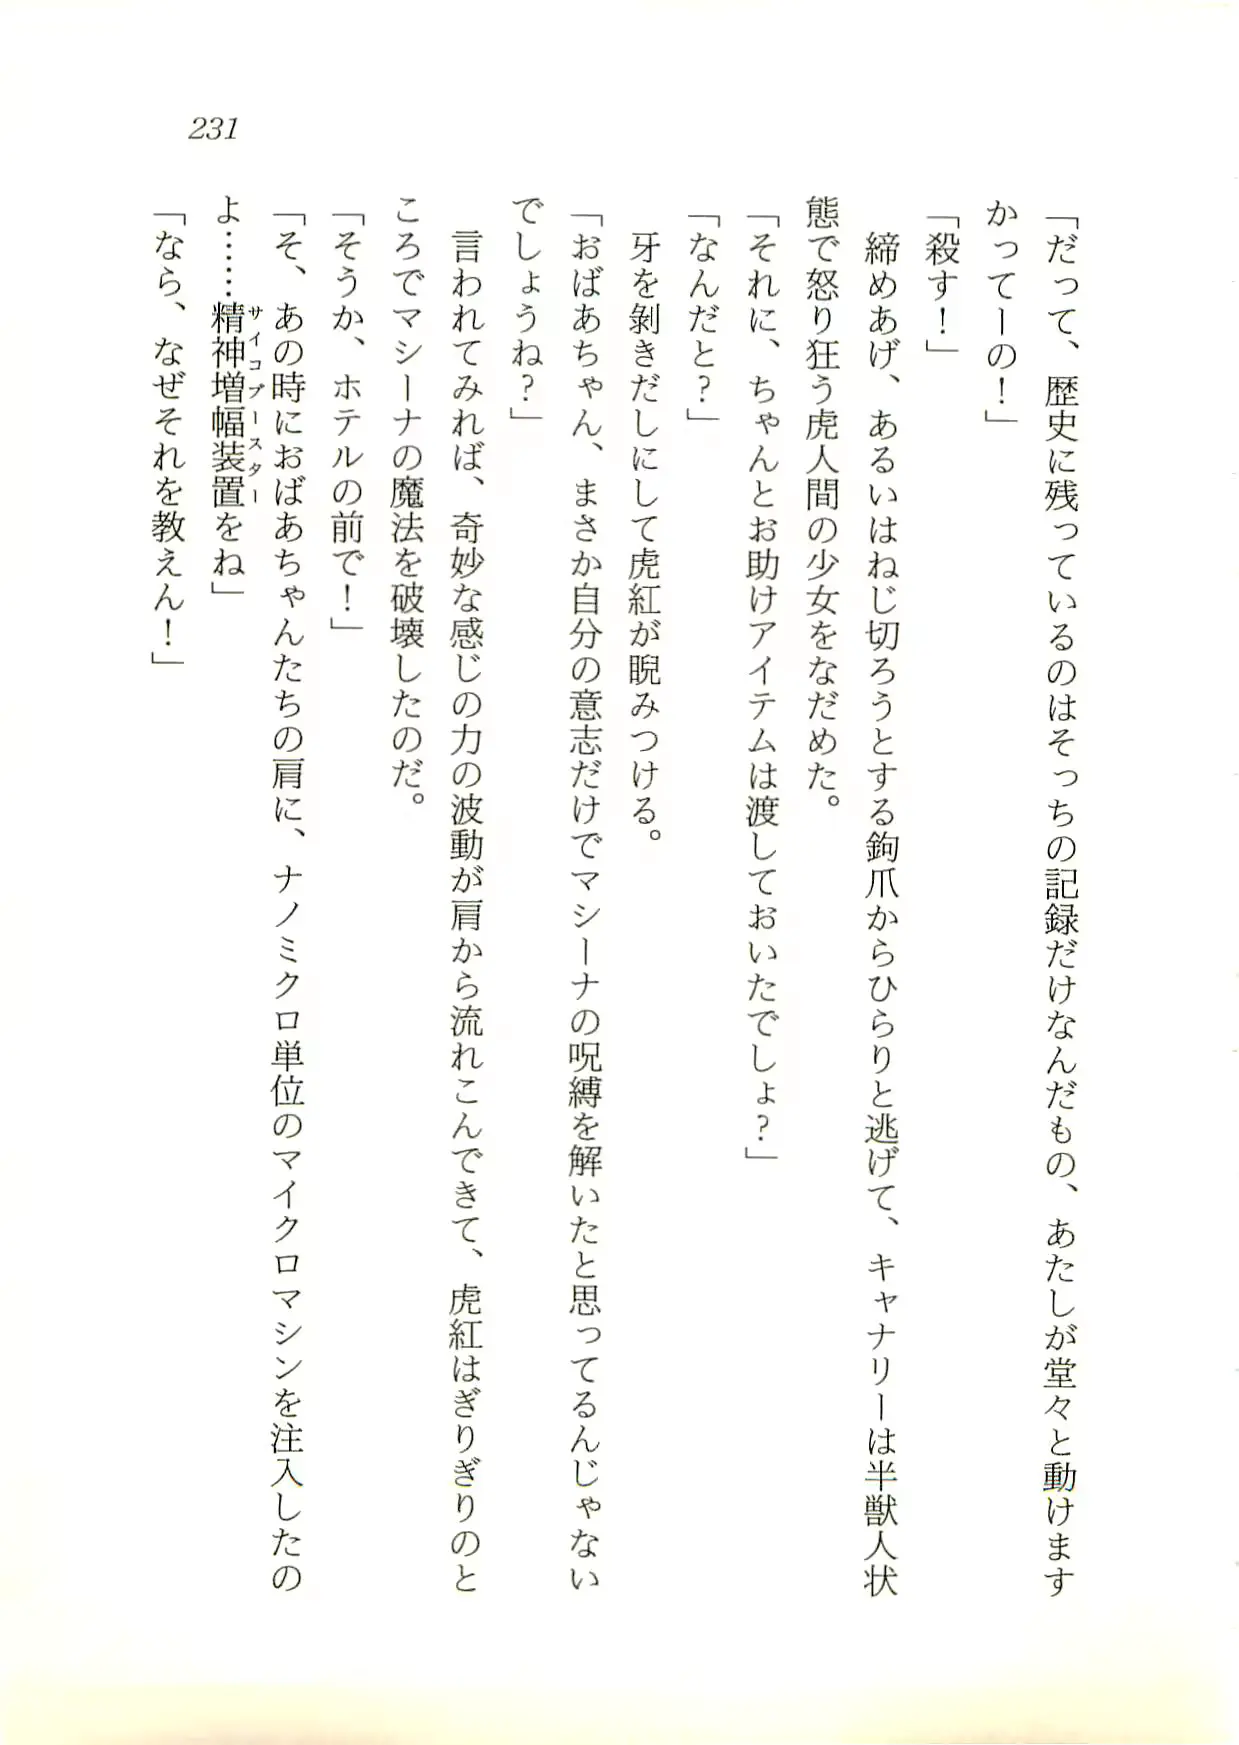 231
「だって、歴史に残っているのはそっちの記録だけなんだもの、あたしが堂々と動けます
かってーの！」
「殺す！」
締めあげ、あるいはねじ切ろうとする鉤爪からひらりと逃げて、キャナリーは半獣人状
態で怒り狂う虎人間の少女をなだめた。
「それに、ちゃんとお助けアイテムは渡しておいたでしょ？」
「なんだと？」
牙を剝きだしにして虎紅が睨みつける。
「おばあちゃん、まさか自分の意志だけでマシーナの呪縛を解いたと思ってるんじゃない
でしょうね？」
言われてみれば、奇妙な感じの力の波動が肩から流れこんできて、虎紅はぎりぎりのと
ころでマシーナの魔法を破壊したのだ。
「そうか、ホテルの前で！」
「そ、あの時におばあちゃんたちの肩に、ナノミクロ単位のマイクロマシンを注入したの
よ……精神増幅装置をね」
サイコブースター
「なら、なぜそれを教えん！」